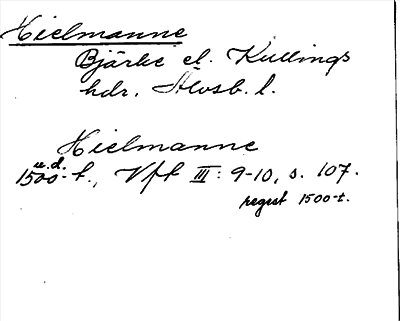 Hielmanne
Bjärke el. Kullings
hdr, Älvsb. l.
Hielmanne
u.d.
1500-t., Vft III: 9-10, s. 107.
regest 1500-t.